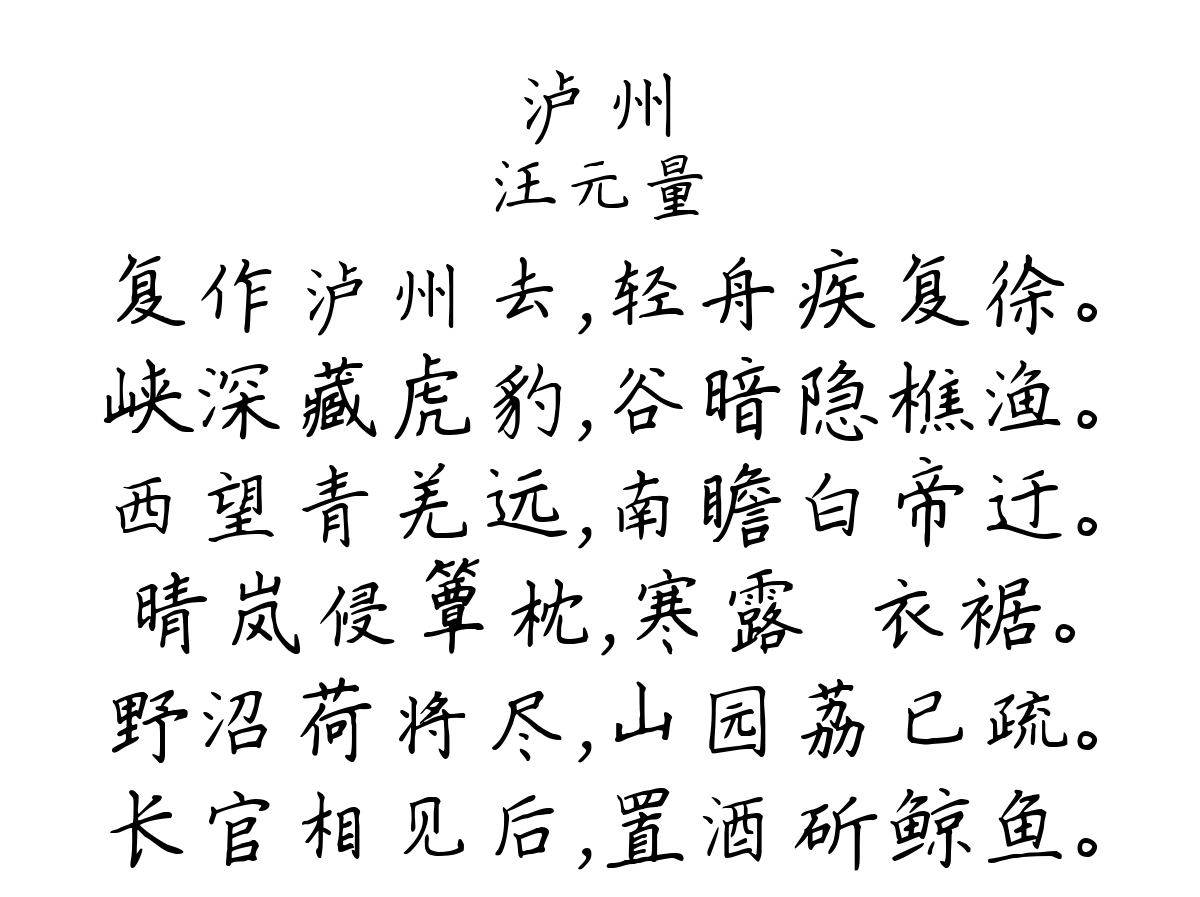 泸州
汪元量
复作泸州去,轻舟疾复徐。
峡深藏虎豹,谷暗隐樵渔。
西望青羌远,南瞻白帝迂。
晴岚侵簟枕,寒露 衣裾。
野沼荷将尽,山园荔已疏。
长官相见后,置酒斫鲸鱼。